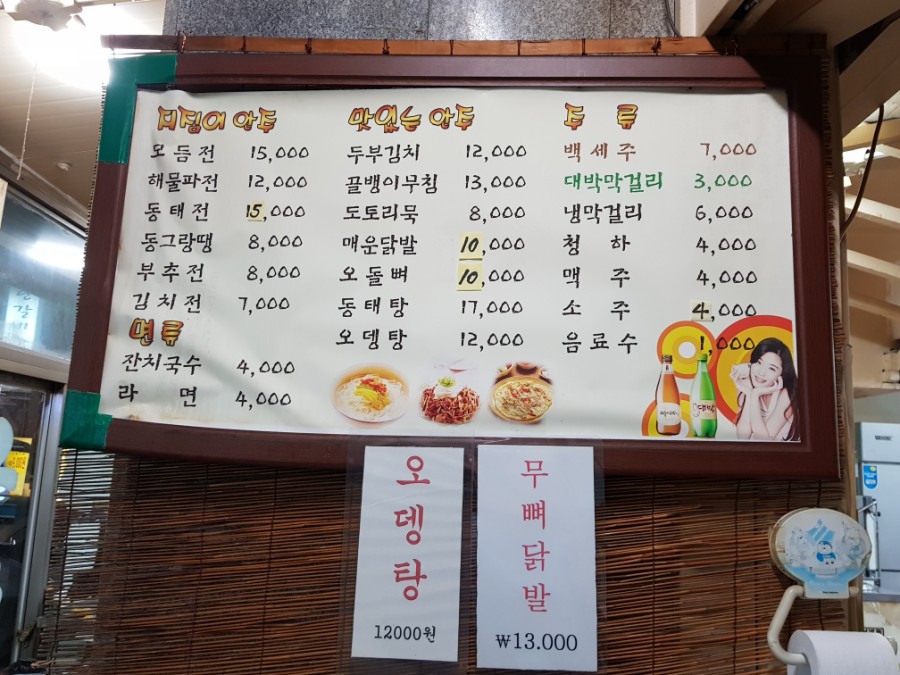 지짐이 안주
모듬전 15,000
해물파전 12,000
동태전 15,000
동그랑땡 8,000
부추전 8,000
김치전 7,000
면류
잔치국수 4,000
라 면 4,000
맛있는 안주
두부김치 12,000
골뱅이무침 13,000
도토리묵 8,000
매운닭발 10,000
오돌뼈 10,000
동태탕 17,000
오뎅탕 12,000
주 류
백세주 7,000
대박막걸리 3,000
냉막걸리 6,000
청 하 4,000
맥 주 4,000
소 주 4,000
음료수 1,000
오뎅탕
12000원
무뼈닭발
₩13.000